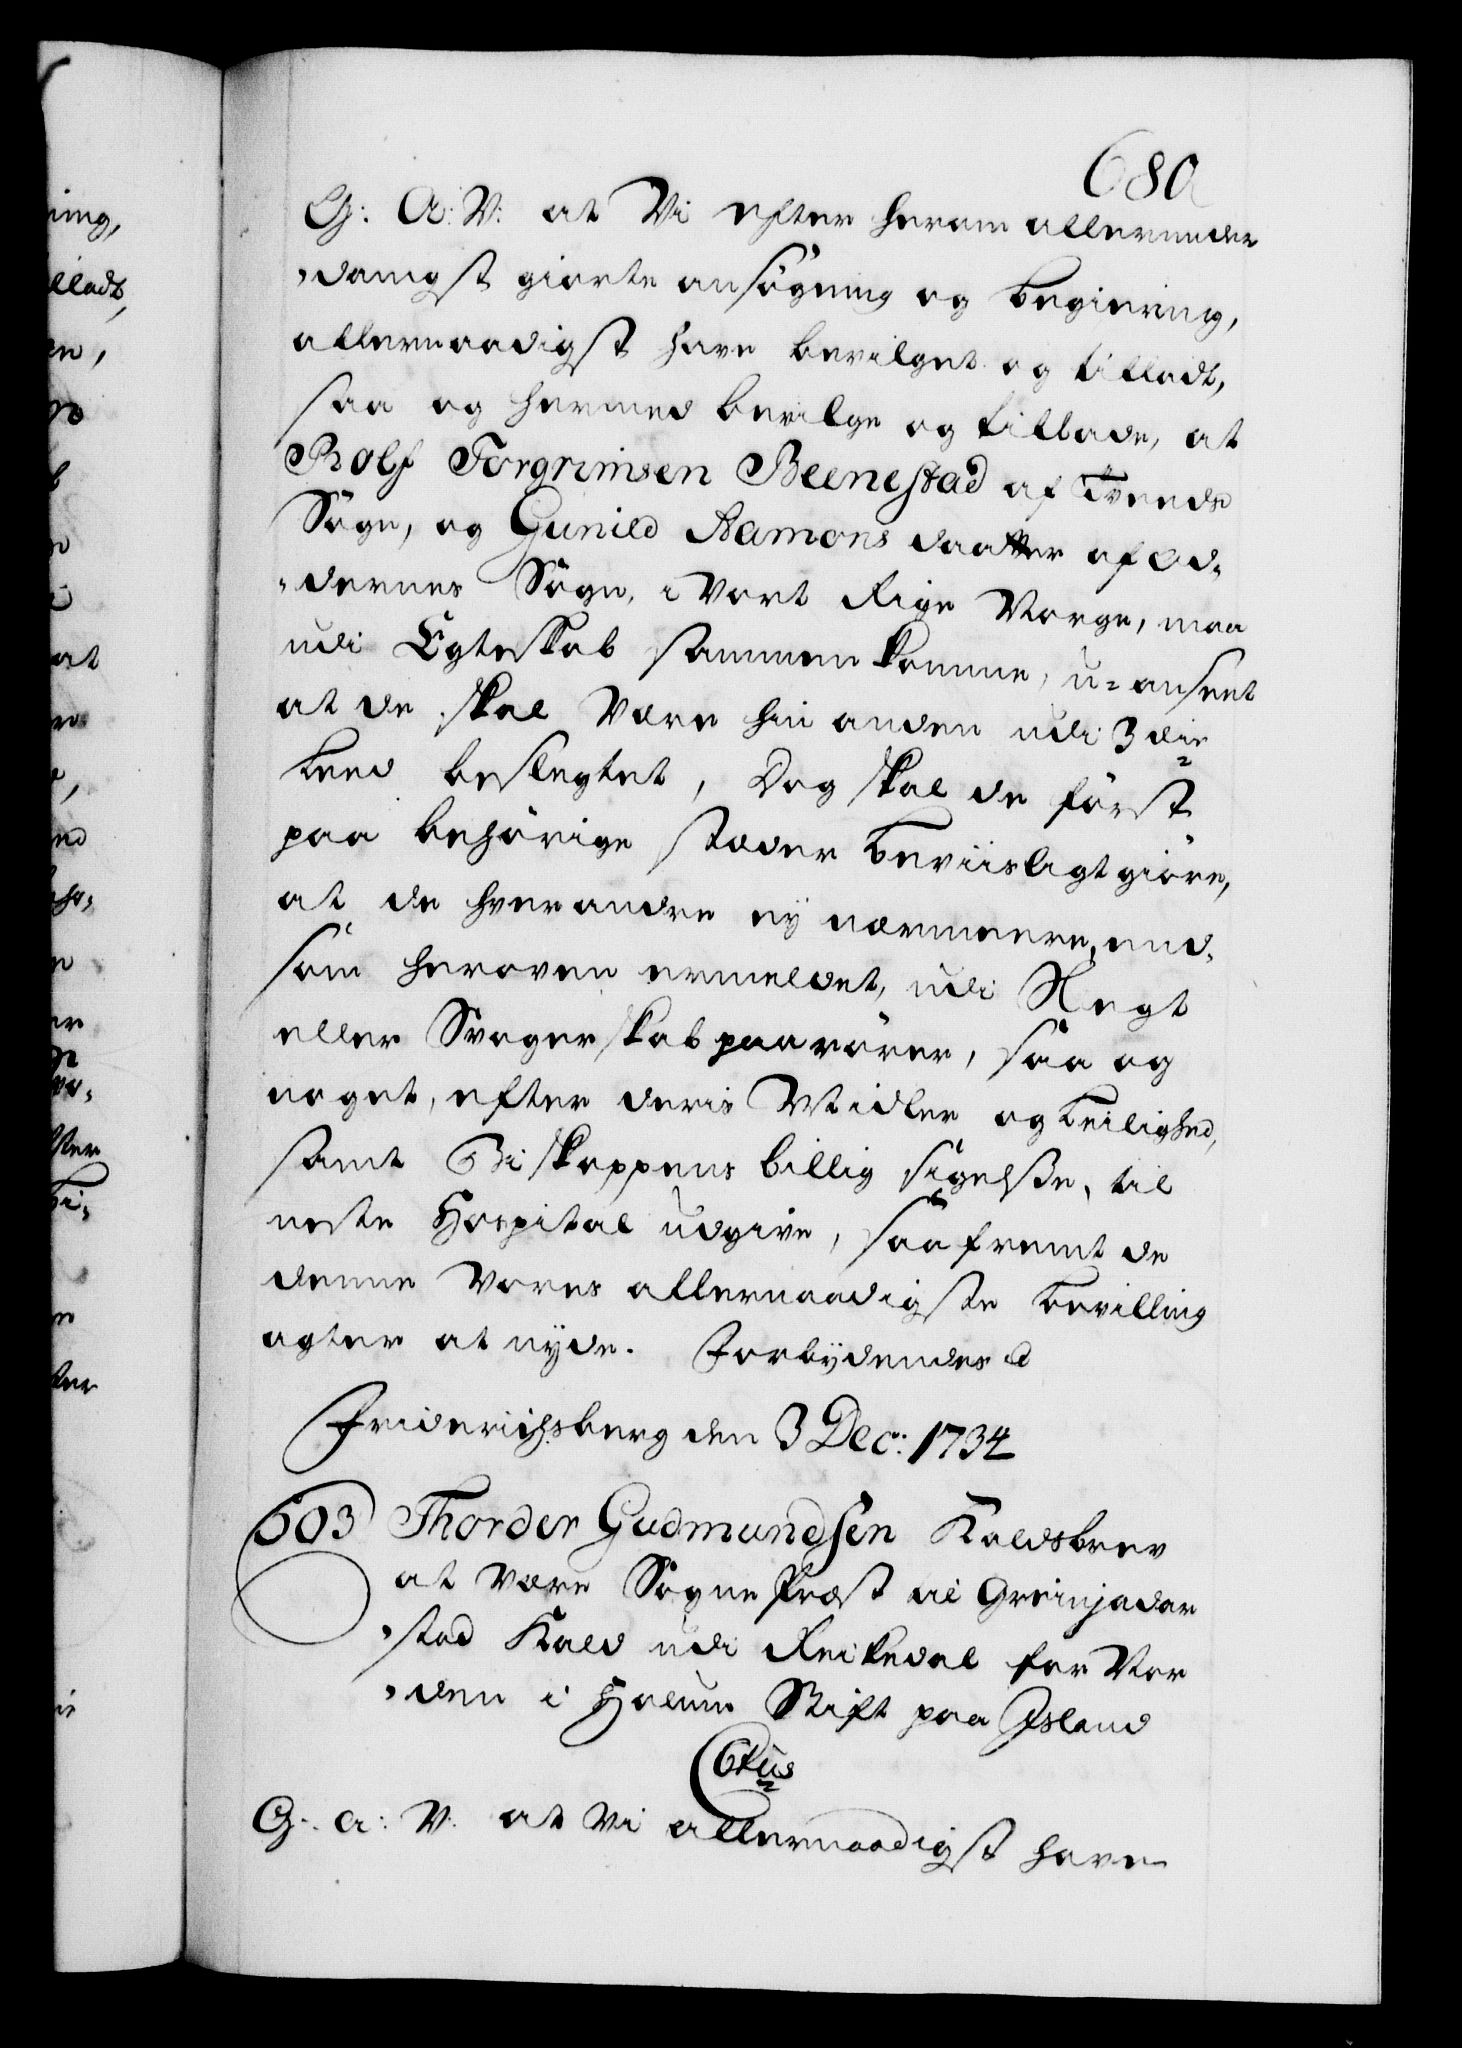 680
G: A: V: at Vi efter herom allerunder
-danigst giorte ansögning og begiering,
allernaadigst have bevilget og tilladt,
saa og hermed bevilge og tillade, at
Rolf Torgrimsen Beenestad af Tveeds
Sogn, og Gunild Aamons daatter af Od-
-dernes Sogn, i Vort Rige Norge, maa
udi Egteskab sammenkomme, u-anseet
at de skal være hin anden udi 3die
Leed beslegtet, Dog skal de först
paa behörige stæder beviisligt giöre,
at de hverandre ey nærmeere, end
som heroven ermeldet, udi Slegt
eller Svogerskab paarörer, saa og
noget, efter deris Midler og Leilighed,
samt Biskoppens billig sigelsse, til
neste Hospital udgive, saafremt de
denne Vores allernaadigste bevilling
agter at nyde. Forbydendes &
Friderichsberg den 3 Dec: 1734
503 Thorder Gudmundsen Kaldsbrev
at være Sogne Præst til Greinjadar
-stad Kald udi Reikedal for Nor
-den i Holum Stift paa Island
C6tus
G: A: V: at Vi allernaadigst have